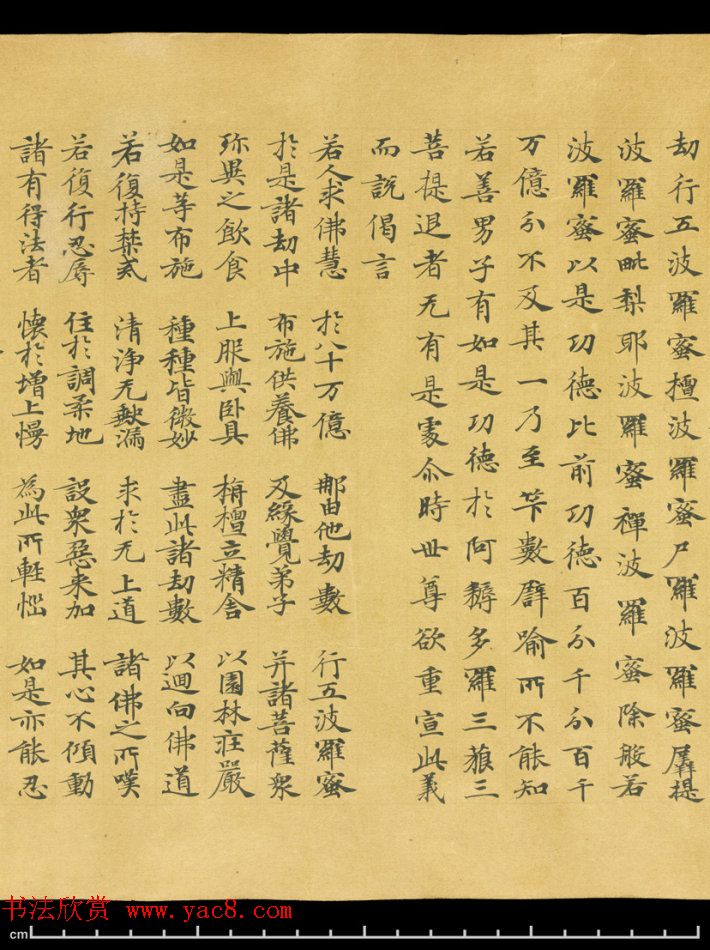 劫行五波羅蜜檀波羅蜜尸羅波羅蜜羼提
波羅蜜毗梨耶波羅蜜禪波羅蜜除般若
波羅蜜以是功德比前功德百分千分百千
万億分不及其一乃至筭數譬喻所不能知
若善男子有如是功德於阿耨多羅三藐三
菩提退者无有是處尒時世尊欲重宣此義
而說偈言
若人求佛慧 於八十万億 那由他劫數 行五波羅蜜
於是諸劫中 布施供養佛 及緣覺弟子 并諸菩薩衆
珎異之飲食 上服與卧具 栴檀立精舍 以園林莊嚴
如是等布施 種種皆微妙 盡此諸劫數 以迴向佛道
若復持禁戒 清淨无缺漏 求於无上道 諸佛之所嘆
若復行忍辱 住於調柔地 設衆惡来加 其心不傾動
諸有得法者 懷於增上慢 為此所輕惱 如是亦能忍
书法欣赏 www.yac8.com
cm